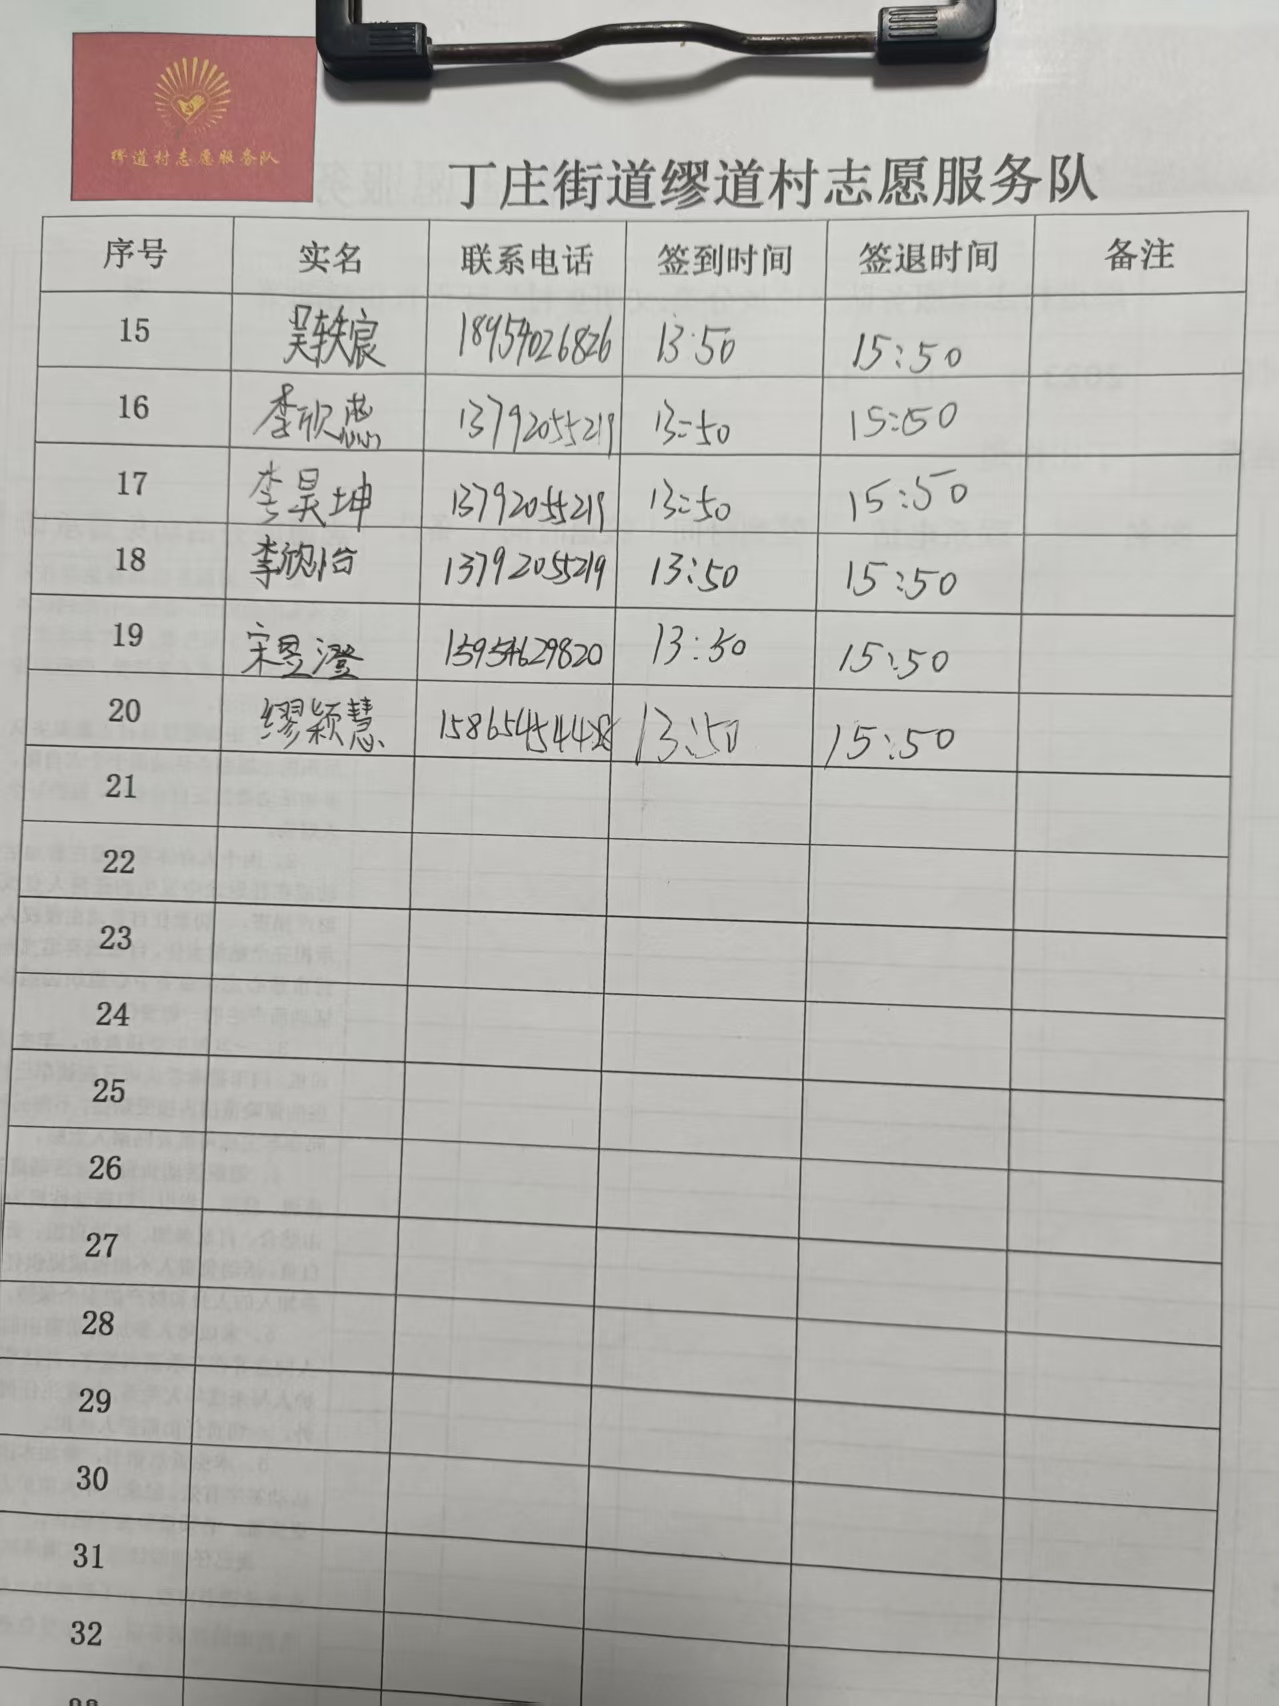 缪道村志愿服务队
丁庄街道缪道村志愿服务队
序号 实名 联系电话 签到时间 签退时间 备注
15 吴轶宸 18954026826 13:50 15:50
16 李欣蕊 13792055219 13:50 15:50
17 李昊坤 13792055219 13:50 15:50
18 李欣怡 13792055219 13:50 15:50
19 宋昱澄 15954629820 13:50 15:50
20 缪颖慧 13:50 15:50
21
22
23
24
25
26
27
28
29
30
31
32